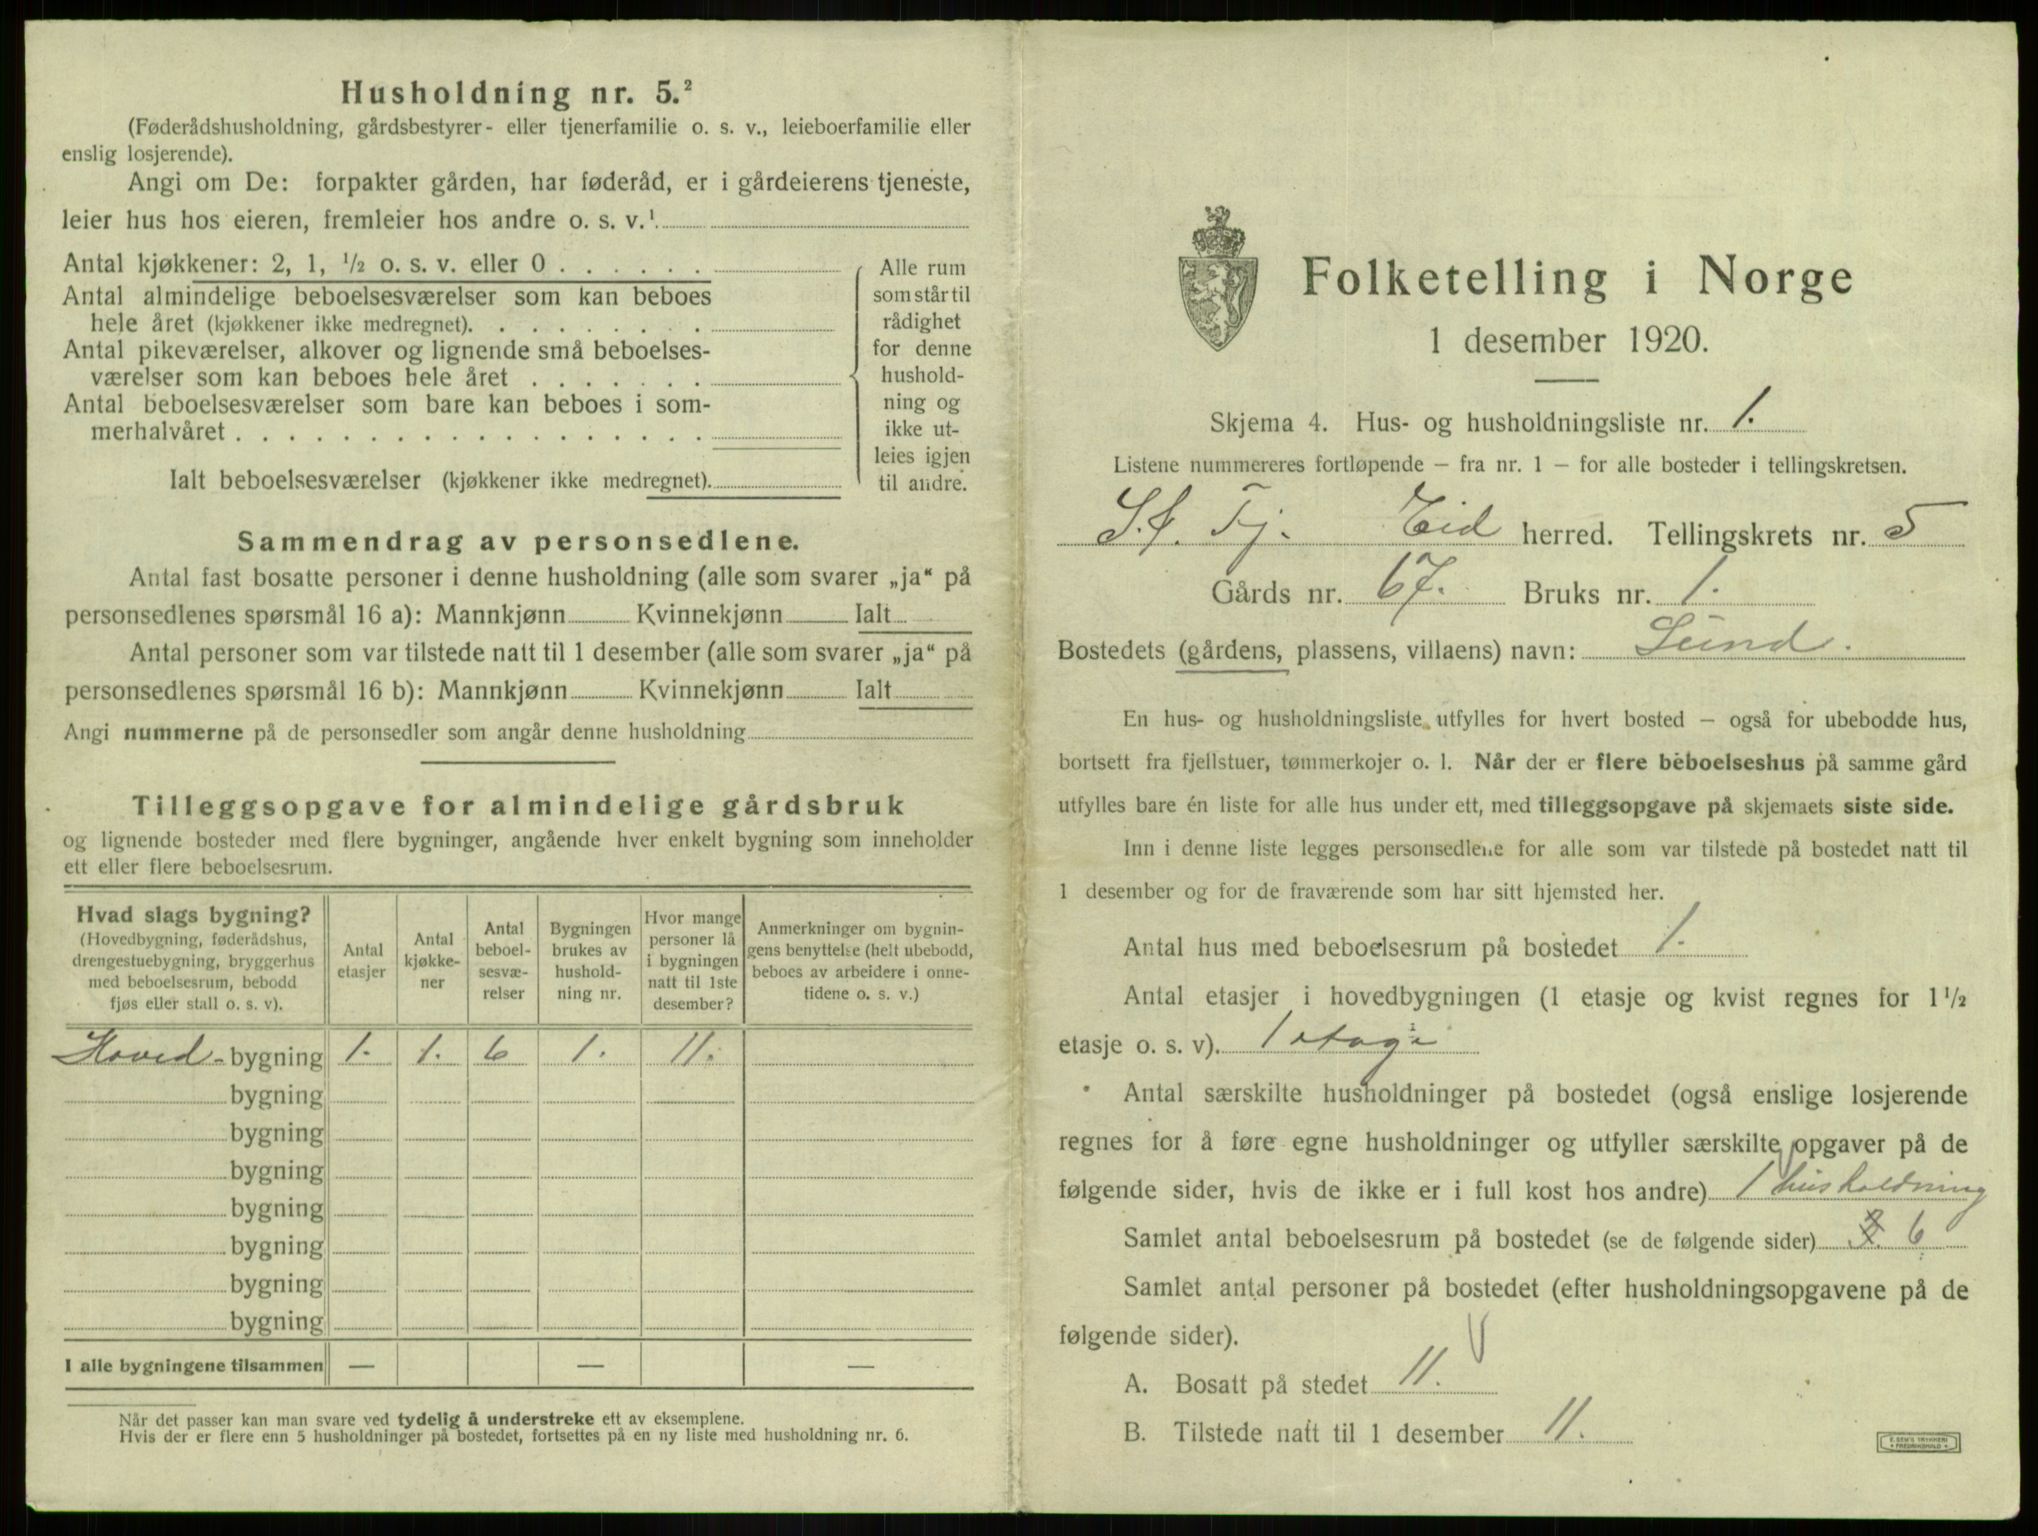 Husholdning nr. 5.²
(Føderådshusholdning, gårdsbestyrer- eller tjenerfamilie o. s. v., leieboerfamilie eller
enslig losjerende).
Angi om De: forpakter gården, har føderåd, er i gårdeierens tjeneste,
leier hus hos eieren, fremleier hos andre o. s. v.¹
Antal kjøkkener: 2, 1, ½ o. s. v. eller 0
Antal almindelige beboelsesværelser som kan beboes
hele året (kjøkkener ikke medregnet).
Antal pikeværelser, alkover og lignende små beboelses-
værelser som kan beboes hele året
Antal beboelsesværelser som bare kan beboes i som-
merhalvåret
Ialt beboelsesværelser (kjøkkener ikke medregnet).
Alle rum
som står til
rådighet
for denne
hushold-
ning og
ikke ut-
leies igjen
til andre.
Sammendrag av personsedlene.
Antal fast bosatte personer i denne husholdning (alle som svarer „ja“ på
personsedlenes spørsmål 16 a): Mannkjønn Kvinnekjønn Ialt
Antal personer som var tilstede natt til 1 desember (alle som svarer „ja“ på
personsedlenes spørsmål 16 b): Mannkjønn Kvinnekjønn Ialt
Angi nummerne på de personsedler som angår denne husholdning
Tilleggsopgave for almindelige gårdsbruk
og lignende bosteder med flere bygninger, angående hver enkelt bygning som inneholder
ett eller flere beboelsesrum.
Hvad slags bygning?
(Hovedbygning, føderådshus,
drengestuebygning, bryggerhus
med beboelsesrum, bebodd
fjøs eller stall o. s. v).
Antal
etasjer
Antal
kjøkke-
ner
Antal
beboel-
sesvæ-
relser
Bygningen
brukes av
hushold-
ning nr.
Hvor mange
personer lå
i bygningen
natt til 1ste
desember?
Anmerkninger om bygnin-
gens benyttelse (helt ubebodd,
beboes av arbeidere i onne-
tidene o. s. v.)
Hoved-bygning 1. 1. 6 1. 11.
bygning
bygning
bygning
bygning
bygning
bygning
bygning
I alle bygningene tilsammen — — —
Når det passer kan man svare ved tydelig å understreke ett av eksemplene.
Hvis der er flere enn 5 husholdninger på bostedet, fortsettes på en ny liste med husholdning nr. 6.
Folketelling i Norge
1 desember 1920.
Skjema 4. Hus- og husholdningsliste nr. 1.
Listene nummereres fortløpende – fra nr. 1 – for alle bosteder i tellingskretsen.
S. & Fj. Eid herred. Tellingskrets nr. 5
Gårds nr. 67. Bruks nr. 1.
Bostedets (gårdens, plassens, villaens) navn: Lund.
En hus- og husholdningsliste utfylles for hvert bosted – også for ubebodde hus,
bortsett fra fjellstuer, tømmerkojer o. l. Når der er flere beboelseshus på samme gård
utfylles bare én liste for alle hus under ett, med tilleggsopgave på skjemaets siste side.
Inn i denne liste legges personsedlene for alle som var tilstede på bostedet natt til
1 desember og for de fraværende som har sitt hjemsted her.
Antal hus med beboelsesrum på bostedet 1.
Antal etasjer i hovedbygningen (1 etasje og kvist regnes for 1½
etasje o. s. v). 1 etage
Antal særskilte husholdninger på bostedet (også enslige losjerende
regnes for å føre egne husholdninger og utfyller særskilte opgaver på de
følgende sider, hvis de ikke er i full kost hos andre) 1 husholdning
Samlet antal beboelsesrum på bostedet (se de følgende sider) 6
Samlet antal personer på bostedet (efter husholdningsopgavene på de
følgende sider).
A. Bosatt på stedet 11.
B. Tilstede natt til 1 desember 11.
E. SEM'S TRYKKERI
FREDRIKSHALD